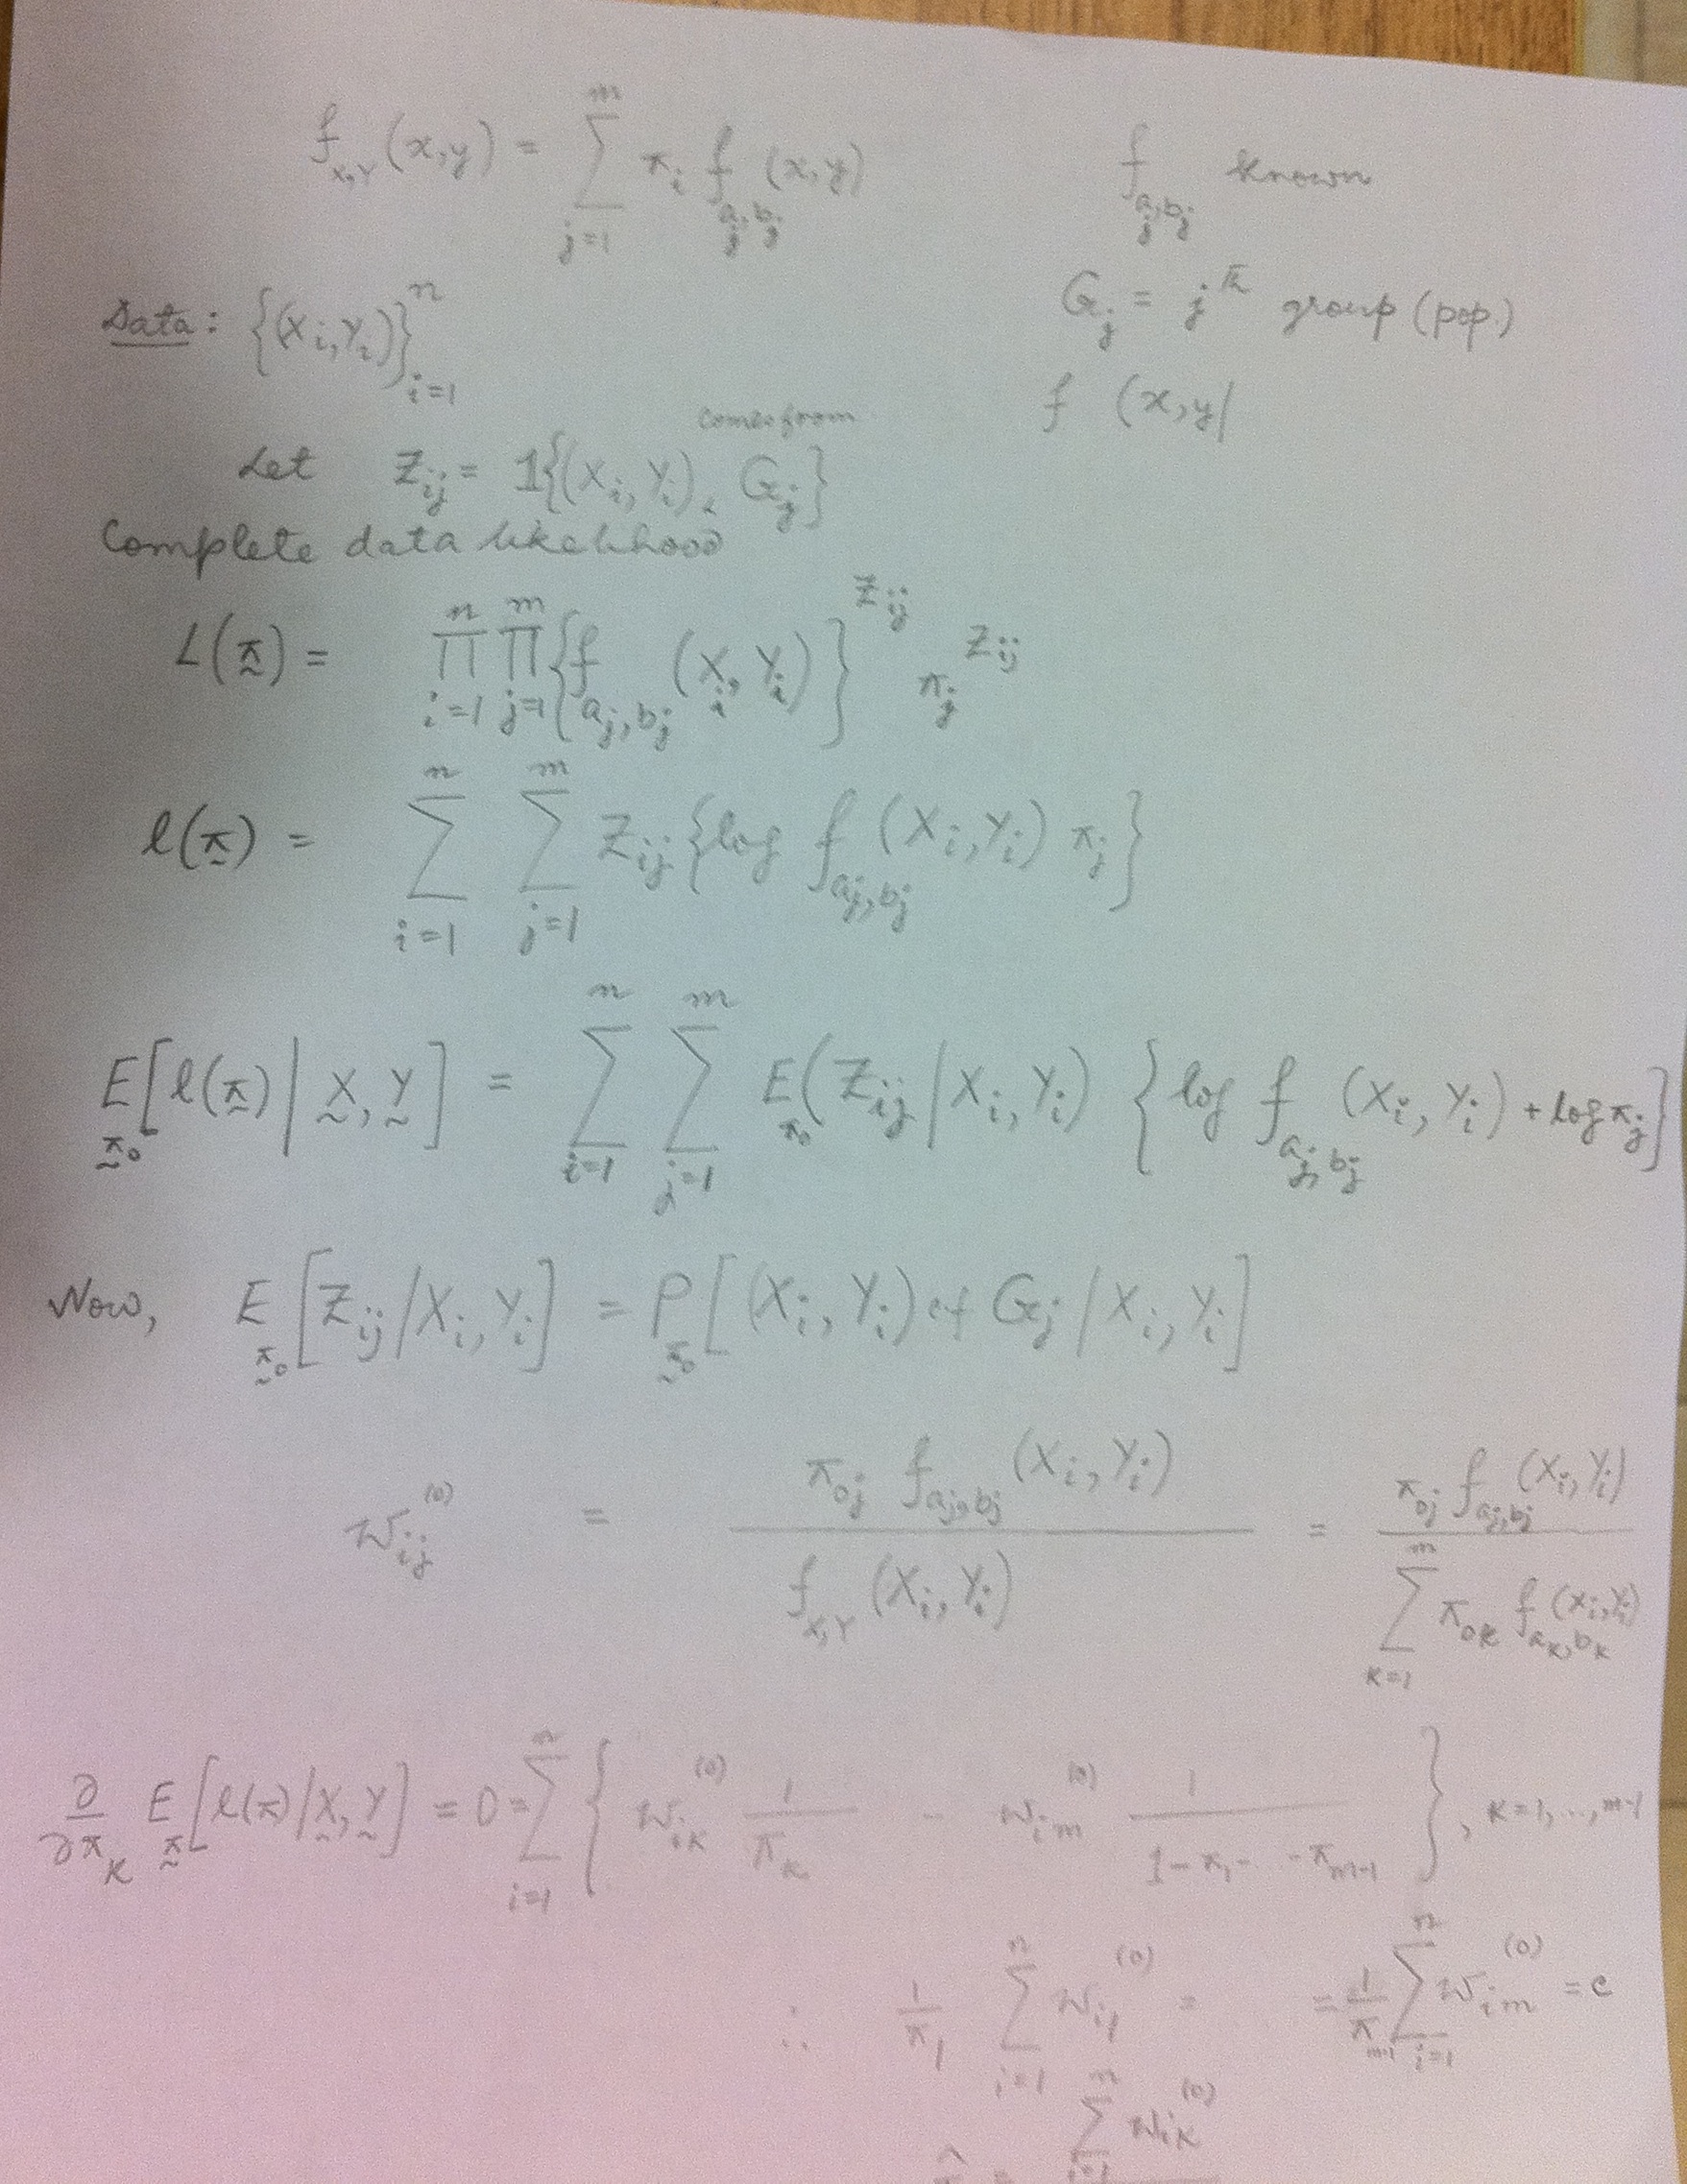 f_{X,Y}(x,y) = \sum_{j=1}^{m} π_i f_{a_j,b_j}(x,y)    f_{a_j,b_j} known
G_j = j^{th} group (pop.)
Data: {(X_i,Y_i)}_{i=1}^{n}
f (x,y|
comes from
Let Z_{ij} = 1{(X_i,Y_i) G_j}
Complete data likelihood
L(π) = \prod_{i=1}^{n} \prod_{j=1}^{m} {f_{a_j,b_j}(X_i,Y_i)}^{Z_{ij}} π_j^{Z_{ij}}
l(π) = \sum_{i=1}^{n} \sum_{j=1}^{m} Z_{ij} {log f_{a_j,b_j}(X_i,Y_i) π_j}
E_{π_0}[l(π)|X,Y] = \sum_{i=1}^{n} \sum_{j=1}^{m} E_{π_0}(Z_{ij}|X_i,Y_i) {log f_{a_j,b_j}(X_i,Y_i) + log π_j}
Now, E_{π_0}[Z_{ij}|X_i,Y_i] = P_{π_0}[(X_i,Y_i) G_j|X_i,Y_i]
w_{ij}^{(0)} = \frac{π_{0j} f_{a_j,b_j}(X_i,Y_i)}{f_{X,Y}(X_i,Y_i)} = \frac{π_{0j} f_{a_j,b_j}(X_i,Y_i)}{\sum_{k=1}^{m} π_{0k} f_{a_k,b_k}(X_i,Y_i)}
\frac{∂}{∂π_k} E_{π}[l(π)|X,Y] = 0 = \sum_{i=1}^{n} { w_{ik}^{(0)} \frac{1}{π_k} - w_{im}^{(0)} \frac{1}{1-π_1- - -π_{m-1}} }, k=1,...,m-1
∴ \frac{1}{π_1} \sum_{i=1}^{n} w_{i1}^{(0)} = = \frac{1}{π_{m-1}} \sum_{i=1}^{n} w_{im}^{(0)} = c
\sum w_{ik}^{(0)}